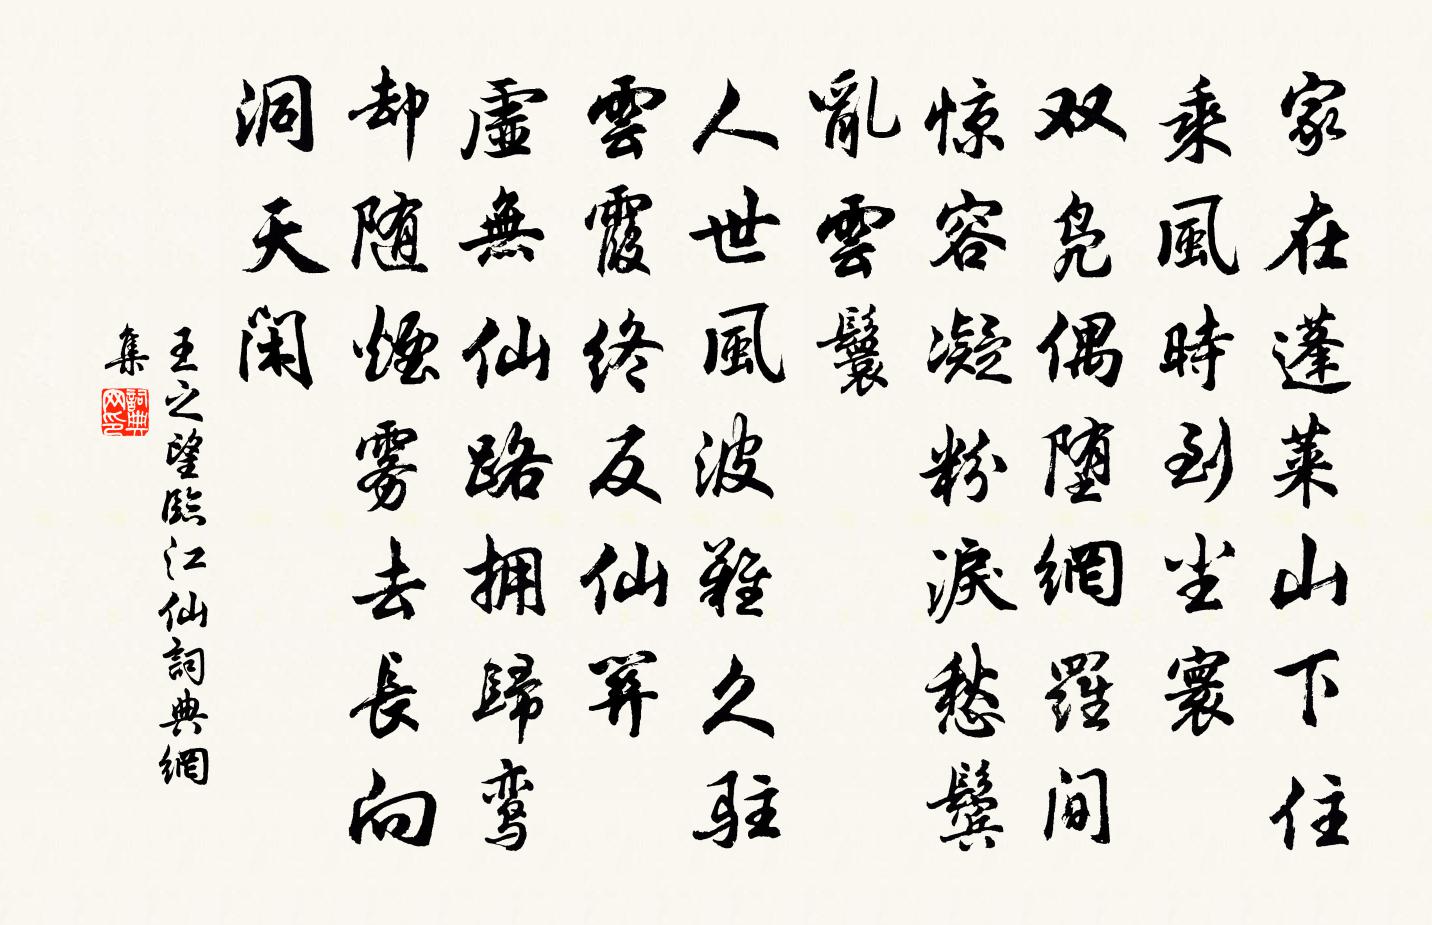 家在蓬萊山下住
乘風時到尘寰
双凫偶堕網羅間
惊容凝粉淚愁鬓
亂雲鬟
人世風波難久駐
雲霞终反仙関
虛無仙路拥歸鸾
却随煙雾去長向
洞天闲
王之望臨江仙詞典網
集
詞典网印